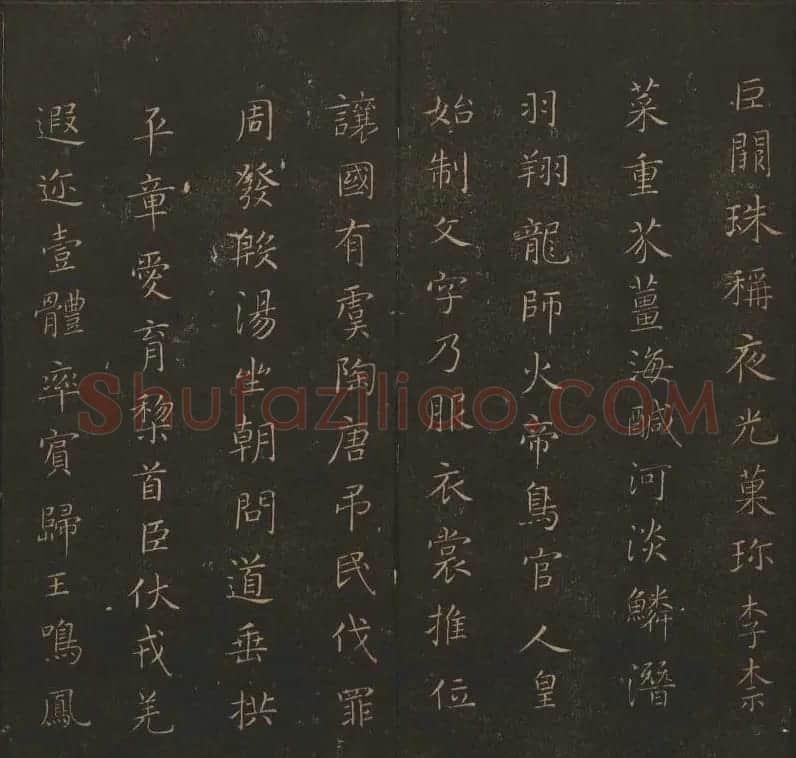 巨闕珠稱夜光菓珎李柰
菜重芥薑海醎河淡鱗潛
羽翔龍師火帝鳥官人皇
始制文字乃服衣裳推位
讓國有虞陶唐吊民伐罪
周發殷湯坐朝問道垂拱
平章愛育黎首臣伏戎羌
遐迩壹體率賓歸王鳴鳳
Shufaziliao.COM